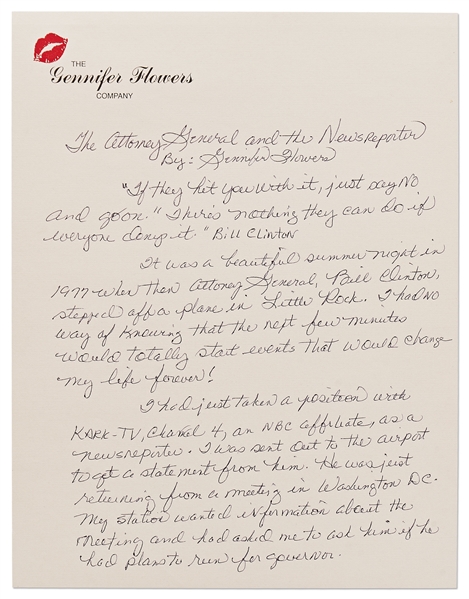 THE
Gennifer Flowers
COMPANY
The Attorney General and the Newsreporter
By: Gennifer Flowers
"If they hit you with it, just say NO
and go on." "There's nothing they can do if
everyone denys it." Bill Clinton
It was a beautiful summer night in
1977 when then Attorney General, Bill Clinton,
stepped off a plane in Little Rock. I had no
way of knowing that the next few minutes
would totally start events that would change
my life forever!
I had just taken a position with
KARK-TV, Channel 4, an NBC affiliate, as a
newsreporter. I was sent out to the airport
to get a statement from him. He was just
returning from a meeting in Washington DC.
My station wanted information about the
meeting and had asked me to ask him if he
had plans to run for governor.